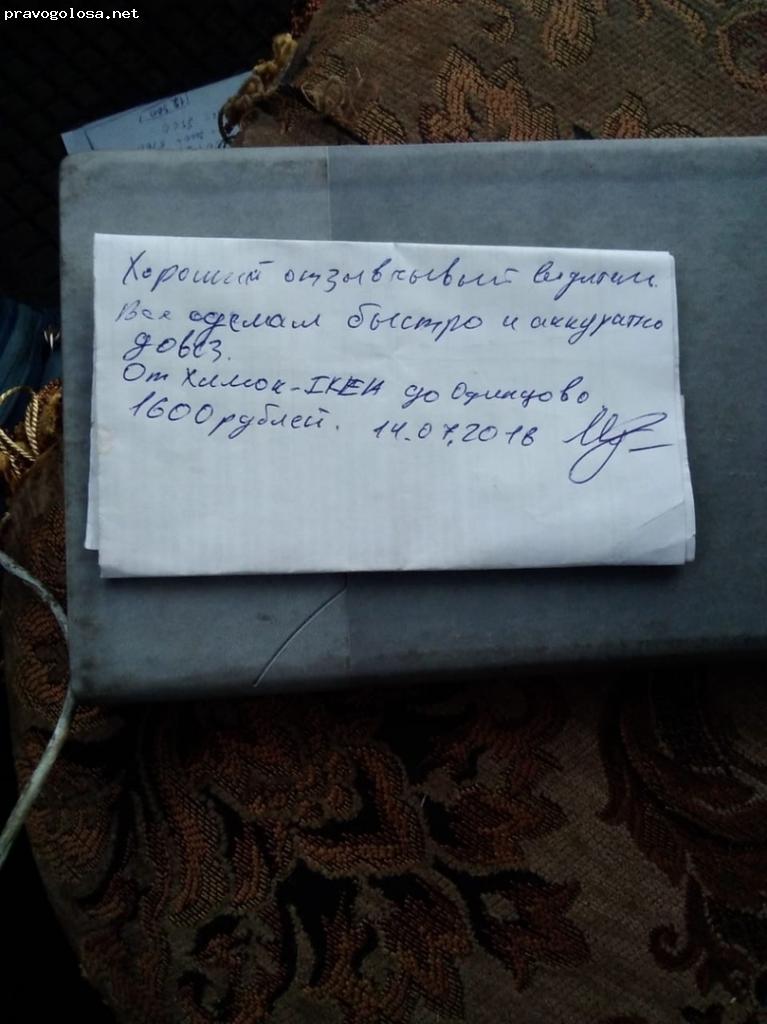 pravogolosa.net
Хороший отзывчивый водитель.
Все сделал быстро и аккуратно
довёз.
От Химок-IKEA до Одинцово
1600 рублей. 14.07.2018